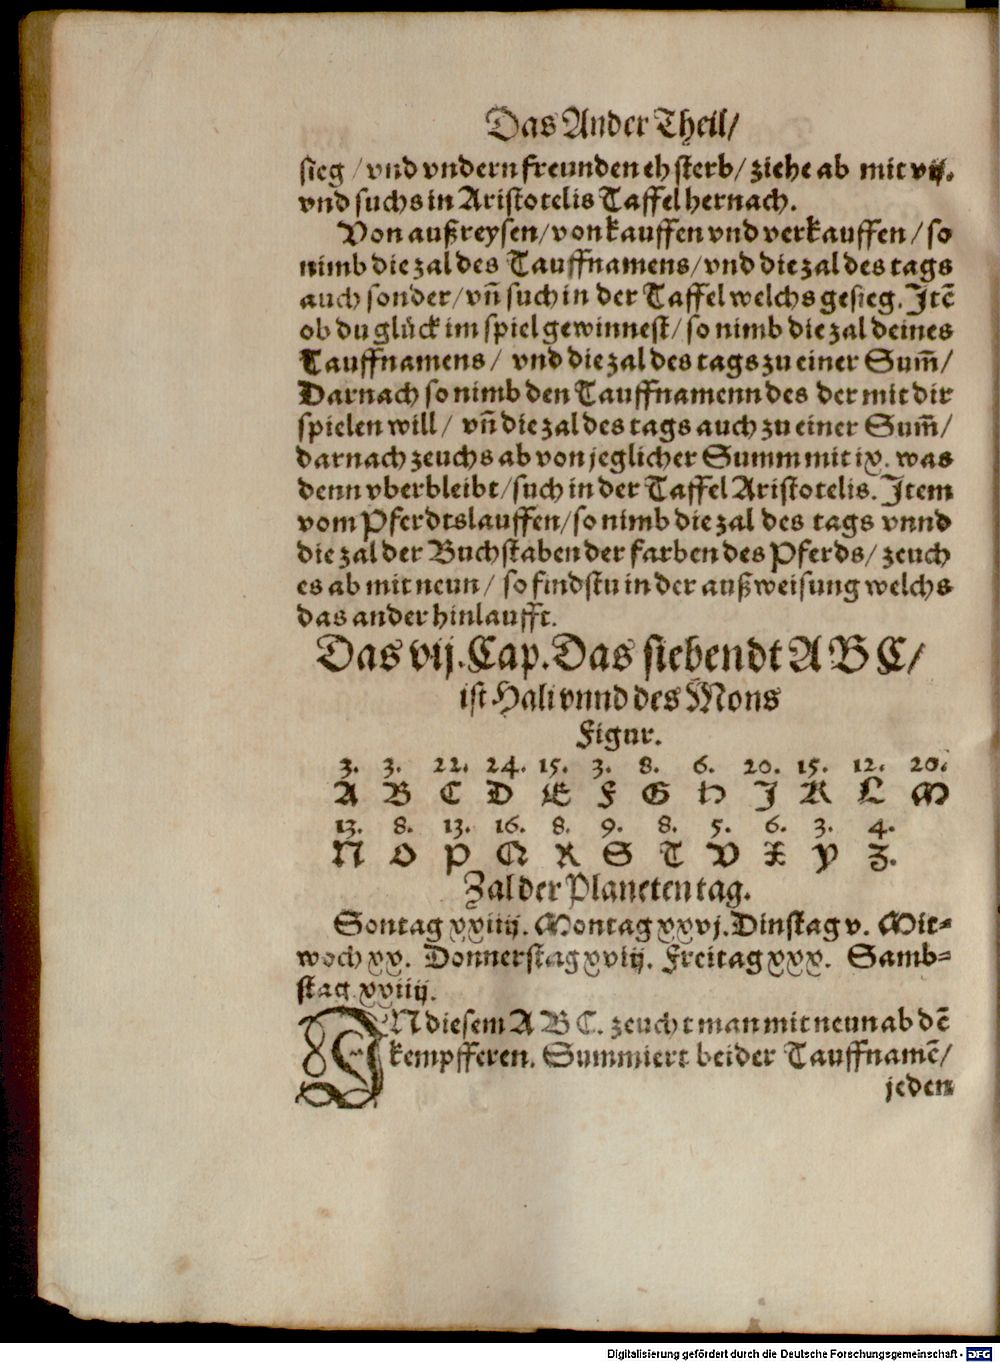 Das Ander Theil/
sieg / vnd vndern freunden eh sterb/ ziehe ab mit vij.
vnd suchs in Aristotelis Taffel hernach.
Von außreysen/ von kauffen vnd verkauffen / so
nimb die zal des Tauffnamens/ vnd die zal des tags
auch sonder/ vñ such in der Taffel welchs gesieg. Itē
ob du glück im spiel gewinnest/ so nimb die zal deines
Tauffnamens/ vnd die zal des tags zu einer Sum̄/
Darnach so nimb den Tauffnamenn des der mit dir
spielen will/ vñ die zal des tags auch zu einer Sum̄/
darnach zeuchs ab von jeglicher Summ mit ix. was
denn vberbleibt/ such in der Taffel Aristotelis. Item
vom Pferdtslauffen/ so nimb die zal des tags vnnd
die zal der Buchstaben der farben des Pferds/ zeuch
es ab mit neun/ so findstu in der außweisung welchs
das ander hinlaufft.
Das vij. Cap. Das siebendt A B C/
ist Hali vnnd des Mons
Figur.
3. 3. 22. 24. 15. 3. 8. 6. 20. 15. 12. 20.
A B C D E F G H I K L M
13. 8. 13. 16. 8. 9. 8. 5. 6. 3. 4.
N O P Q R S T V X Y Z.
Zal der Planeten tag.
Sontag xxiiij. Montag xxvj. Dinstag v. Mit=
woch xx. Donnerstag xviij. Freitag xxx. Samb=
stag xxiiij.
IN diesem A B C. zeucht man mit neun ab dē
kempfferen. Summiert beider Tauffnamē/
jeden
Digitalisierung gefördert durch die Deutsche Forschungsgemeinschaft - DFG